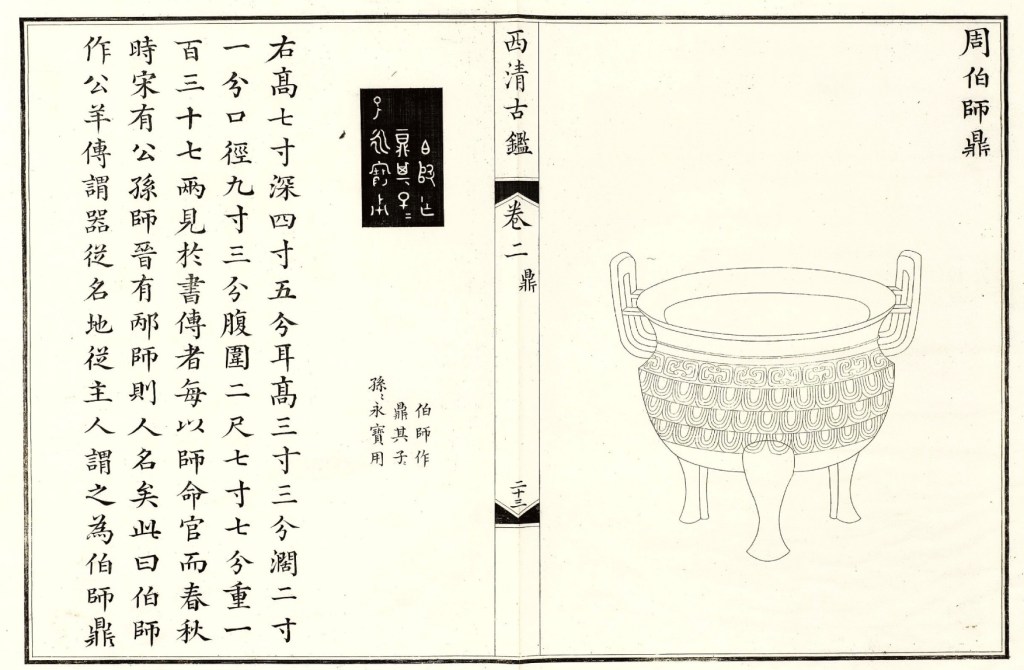 周伯師鼎
西清古鑑
卷二
鼎
二十三
伯師作
鼎其子〻
孫〻永寶用
右髙七寸深四寸五分耳髙三寸三分濶二寸
一分口徑九寸三分腹圍二尺七寸七分重一
百三十七兩見於書傳者每以師命官而春秋
時宋有公孫師晉有邴師則人名矣此曰伯師
作公羊傳謂器從名地從主人謂之為伯師鼎